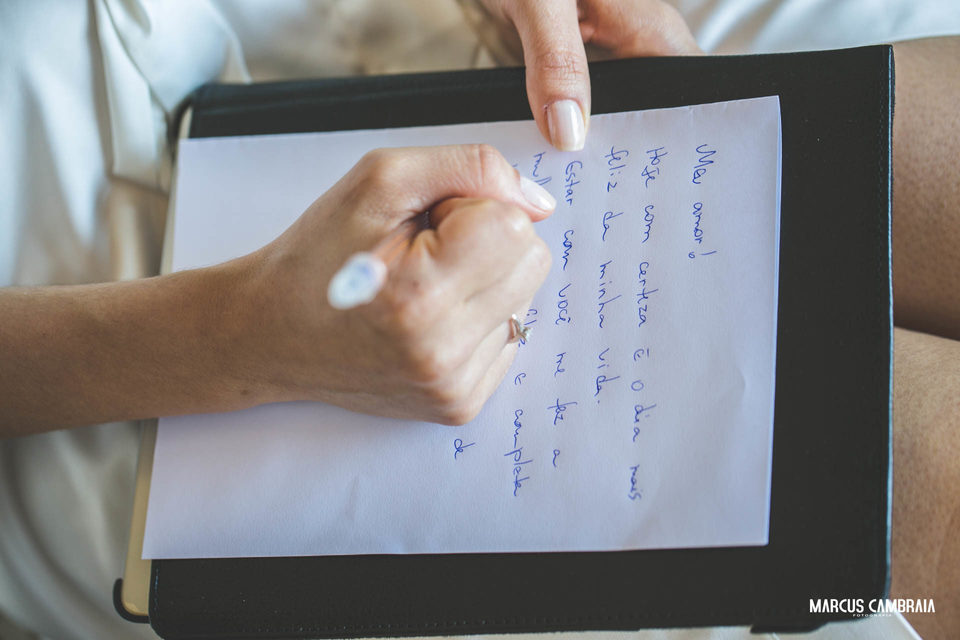 Meu amor!
Hoje com certeza é o dia mais
feliz da minha vida.
Estar com você me faz a
e completa
de
MARCUS CAMBRAIA
FOTOGRAFIA